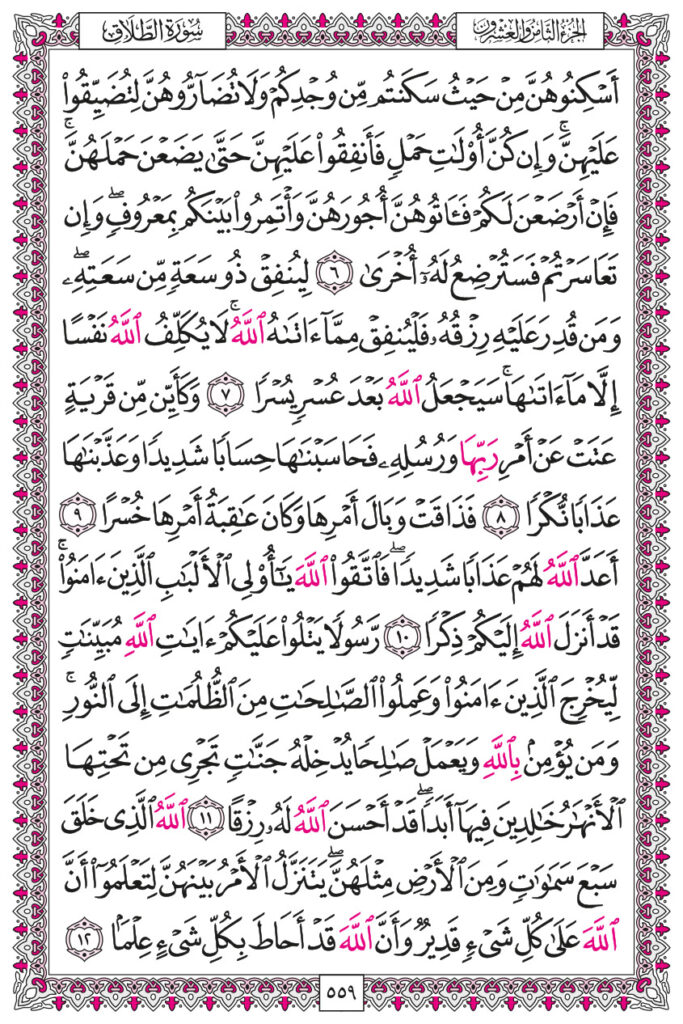 الجزء الثامن والعشرون
سورة الطلاق
أَسْكِنُوهُنَّ مِنْ حَيْثُ سَكَنتُم مِّن وُجْدِكُمْ وَلَا تُضَآرُّوهُنَّ لِتُضَيِّقُوا۟
عَلَيْهِنَّ ۚ وَإِن كُنَّ أُو۟لَٰتِ حَمْلٍ فَأَنفِقُوا۟ عَلَيْهِنَّ حَتَّىٰ يَضَعْنَ حَمْلَهُنَّ ۚ
فَإِنْ أَرْضَعْنَ لَكُمْ فَـَٔاتُوهُنَّ أُجُورَهُنَّ وَأْتَمِرُوا۟ بَيْنَكُم بِمَعْرُوفٍ ۖ وَإِن
تَعَاسَرْتُمْ فَسَتُرْضِعُ لَهُۥٓ أُخْرَىٰ ٦ لِيُنفِقْ ذُو سَعَةٍ مِّن سَعَتِهِۦ ۖ
وَمَن قُدِرَ عَلَيْهِ رِزْقُهُۥ فَلْيُنفِقْ مِمَّآ ءَاتَىٰهُ ٱللَّهُ ۚ لَا يُكَلِّفُ ٱللَّهُ نَفْسًا
إِلَّا مَآ ءَاتَىٰهَا ۚ سَيَجْعَلُ ٱللَّهُ بَعْدَ عُسْرٍ يُسْرًا ٧ وَكَأَيِّن مِّن قَرْيَةٍ
عَتَتْ عَنْ أَمْرِ رَبِّهَا وَرُسُلِهِۦ فَحَاسَبْنَٰهَا حِسَابًا شَدِيدًا وَعَذَّبْنَٰهَا
عَذَابًا نُّكْرًا ٨ فَذَاقَتْ وَبَالَ أَمْرِهَا وَكَانَ عَٰقِبَةُ أَمْرِهَا خُسْرًا ٩
أَعَدَّ ٱللَّهُ لَهُمْ عَذَابًا شَدِيدًا ۖ فَٱتَّقُوا۟ ٱللَّهَ يَٰٓأُو۟لِى ٱلْأَلْبَٰبِ ٱلَّذِينَ ءَامَنُوا۟ ۚ
قَدْ أَنزَلَ ٱللَّهُ إِلَيْكُمْ ذِكْرًا ١٠ رَّسُولًا يَتْلُوا۟ عَلَيْكُمْ ءَايَٰتِ ٱللَّهِ مُبَيِّنَٰتٍ
لِّيُخْرِجَ ٱلَّذِينَ ءَامَنُوا۟ وَعَمِلُوا۟ ٱلصَّٰلِحَٰتِ مِنَ ٱلظُّلُمَٰتِ إِلَى ٱلنُّورِ ۚ
وَمَن يُؤْمِنۢ بِٱللَّهِ وَيَعْمَلْ صَٰلِحًا يُدْخِلْهُ جَنَّٰتٍ تَجْرِى مِن تَحْتِهَا
ٱلْأَنْهَٰرُ خَٰلِدِينَ فِيهَآ أَبَدًا ۖ قَدْ أَحْسَنَ ٱللَّهُ لَهُۥ رِزْقًا ١١ ٱللَّهُ ٱلَّذِى خَلَقَ
سَبْعَ سَمَٰوَٰتٍ وَمِنَ ٱلْأَرْضِ مِثْلَهُنَّ ۖ يَتَنَزَّلُ ٱلْأَمْرُ بَيْنَهُنَّ لِتَعْلَمُوٓا۟ أَنَّ
ٱللَّهَ عَلَىٰ كُلِّ شَىْءٍ قَدِيرٌ وَأَنَّ ٱللَّهَ قَدْ أَحَاطَ بِكُلِّ شَىْءٍ عِلْمًۢا ١٢
٥٥٩